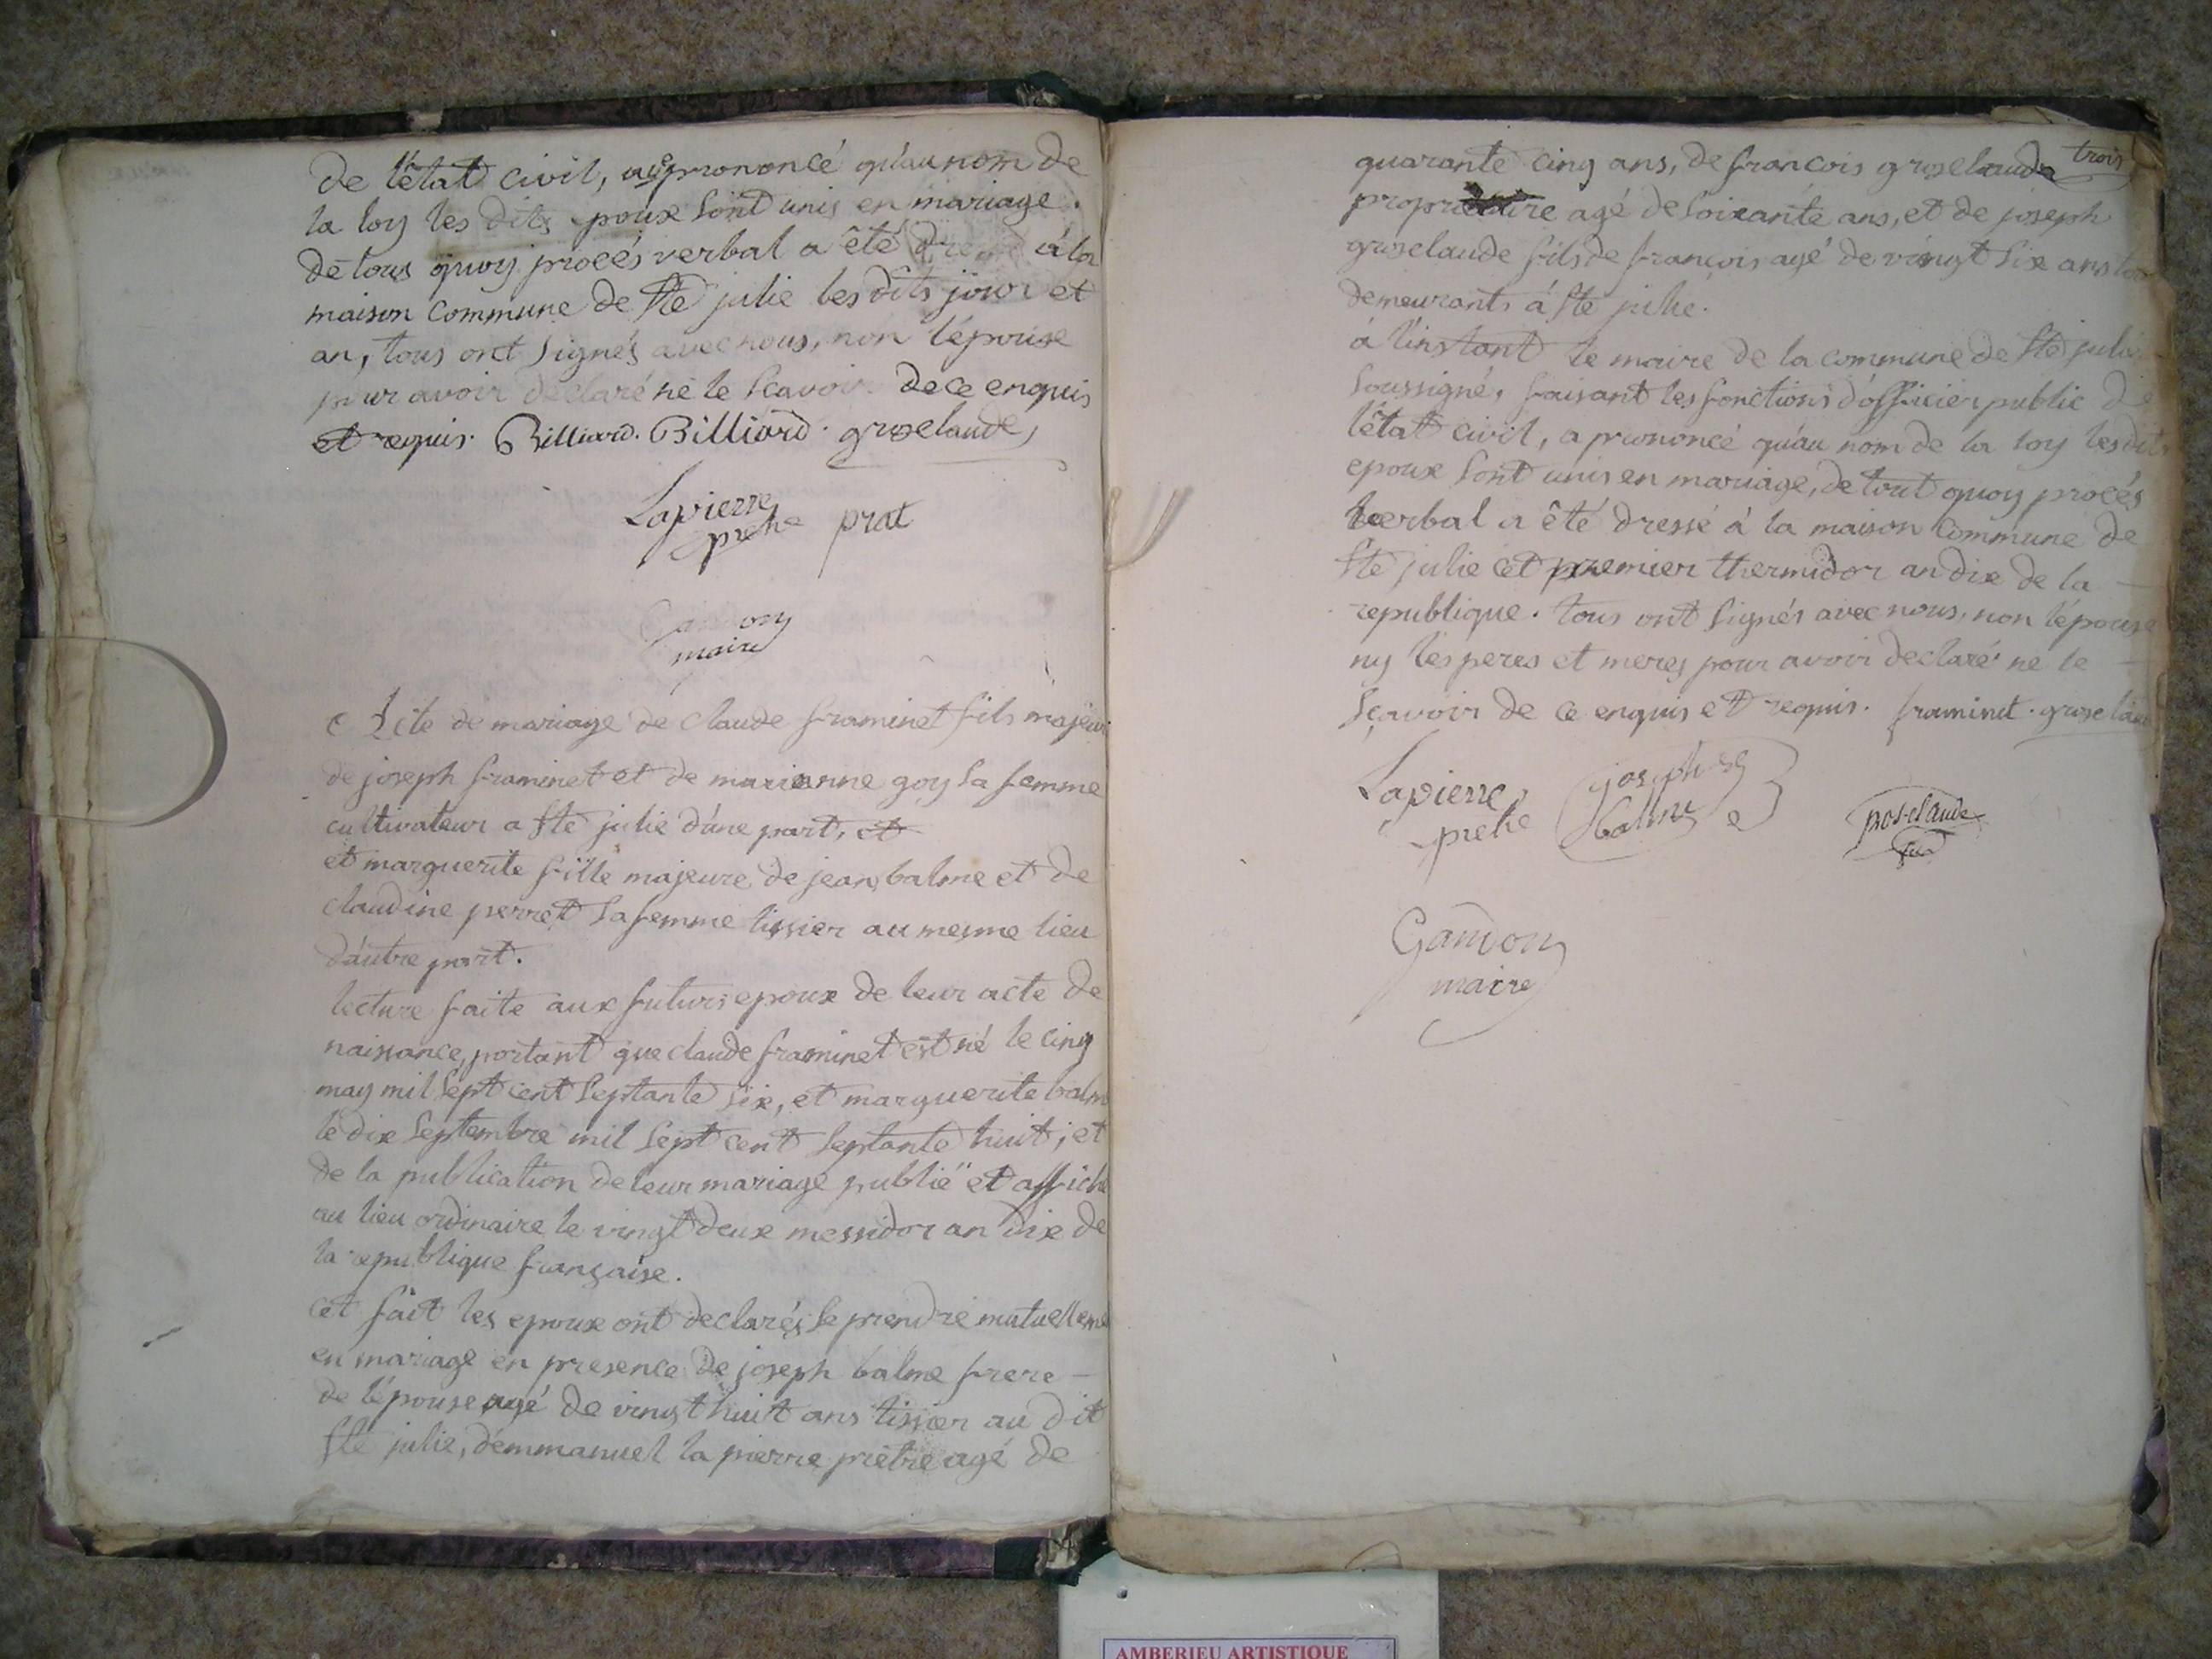 de l'état civil, a prononcé qu'au nom de
la loy les dits epoux sont unis en mariage.
de tous quoy procés verbal a été dressé á la
maison commune de Ste julie les dits jour et
an, tous ont signés avec nous, non l'épouse
pour avoir declaré ne le sçavoir de ce enquis
et requis. Billiard. Billiard. groselaude
Lapierre
pretre prat
Gandon
maire
Acte de mariage de claude framinet fils majeur
de joseph framinet et de marianne goy sa femme
cultivateur a Ste julie d'une part, et
et marguerite fille majeure de jean balme et de
claudine perret sa femme tissier au mesme lieu
d'autre part.
lecture faite aux futurs epoux de leur acte de
naissance, portant que claude framinet est né le cinq
may mil sept cent septante six, et marguerite balme
le dix septembre mil sept cent septante huit; et
de la publication de leur mariage publié et affiché
au lieu ordinaire le vingt deux messidor an dix de
la republique française.
cet fait les epoux ont declarés se prendre mutuelleme
en mariage en presence de joseph balme frere
de l'épouse agé de vingt huit ans tissier au dit
Ste julie, d'emmanuel la pierre prétre agé de
trois
quarante cinq ans, de francois groselaude
propriétaire agé de soixante ans, et de joseph
groselaude fils de françois agé de vingt six ans
demeurants á Ste julie.
á l'instant le maire de la commune de Ste julie
soussigné, faisant les fonctions d'officier public de
l'état civil, a prononcé qu'au nom de la loy les dits
epoux sont unis en mariage, de tout quoy procés
verbal a été dressé á la maison commune de
Ste julie cet premier thermidor an dix de la
republique. tous ont signés avec nous, non l'épouse
ny les peres et meres pour avoir declaré ne le
sçavoir de ce enquis et requis. framinet. groselaude
Lapierre joseph
pretre balme
groselaude
Gandon
maire
AMBERIEU ARTISTIQUE